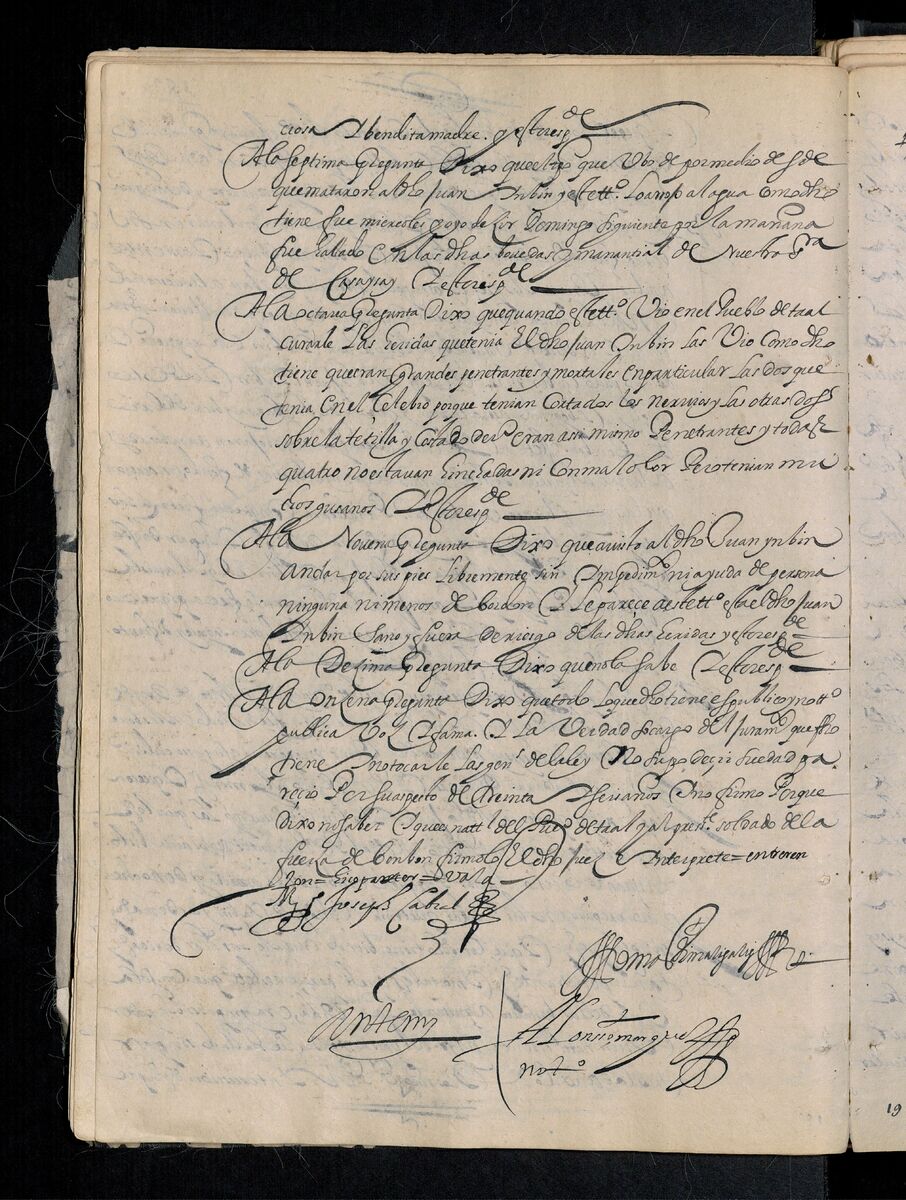 ciosa Y bendita madre. y esto respde
A la septima Pregunta Dixo que el tpo que Ubo de por medio desde
que mataron al dho Juan Inbin y este tto. lo arrojo al agua como dho
tiene fue miercoles Domingo siguiente por la mañana
fue hallado en las dhas bouedas y manantial de Nuestra Sra
de Casaysay Y esto respde
A la octaua Pregunta Dixo que quando este tto. Vio en el Pueblo de taal
curarle Las heridas que tenia El dho Juan Inbin las Vio como dho
tiene que eran Grandes penetrantes y mortales en particular las dos que
tenia en el Celebro porque tenian Cortados los neruios y las otras dos
sobre la tetilla y Costado eran asi mismo Penetrantes y todas
quatro no estauan hinchadas ni Con mal olor Pero tenian mu
chos gusanos Y esto respde
A la Nouena Pregunta Dixo que a uisto al dho Juan ynbin
andar por sus pies Libremente sin Impedimo ni ayuda de persona
ninguna ni menos de bordon Y le parece a este tto esta el dho Juan
Inbin Sano y fuera De riesgo de las dhas heridas y esto respde
A la Decima Pregunta Dixo que no la sabe Y esto respde
A la Onzena Pregunta Dixo que todo lo que dho tiene es publico y notto
publica Voz Y fama. Y La Verdad so cargo del Juramo que fho
tiene no tocarle Las gens de la ley Y No supo dezir su edad pa
recio Por su aspecto de Treinta Y seis años Y no firmo Porque
Dixo no saber Y que es nattl del Puo de taal y al preste soldado de la
fuerza de bonbon firmolo El dho Juez e Interprete = entreren
glon = = vala
Joseph Cabral
Ante my
Alonsso marques
noto
19